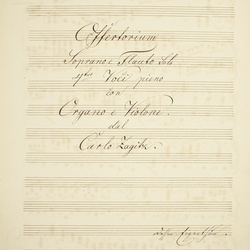 Offertorium
Soprano e Flauto Solo
4tro Voci pieno
con
Organo e Violone.
dal
Carlo Zagitz.